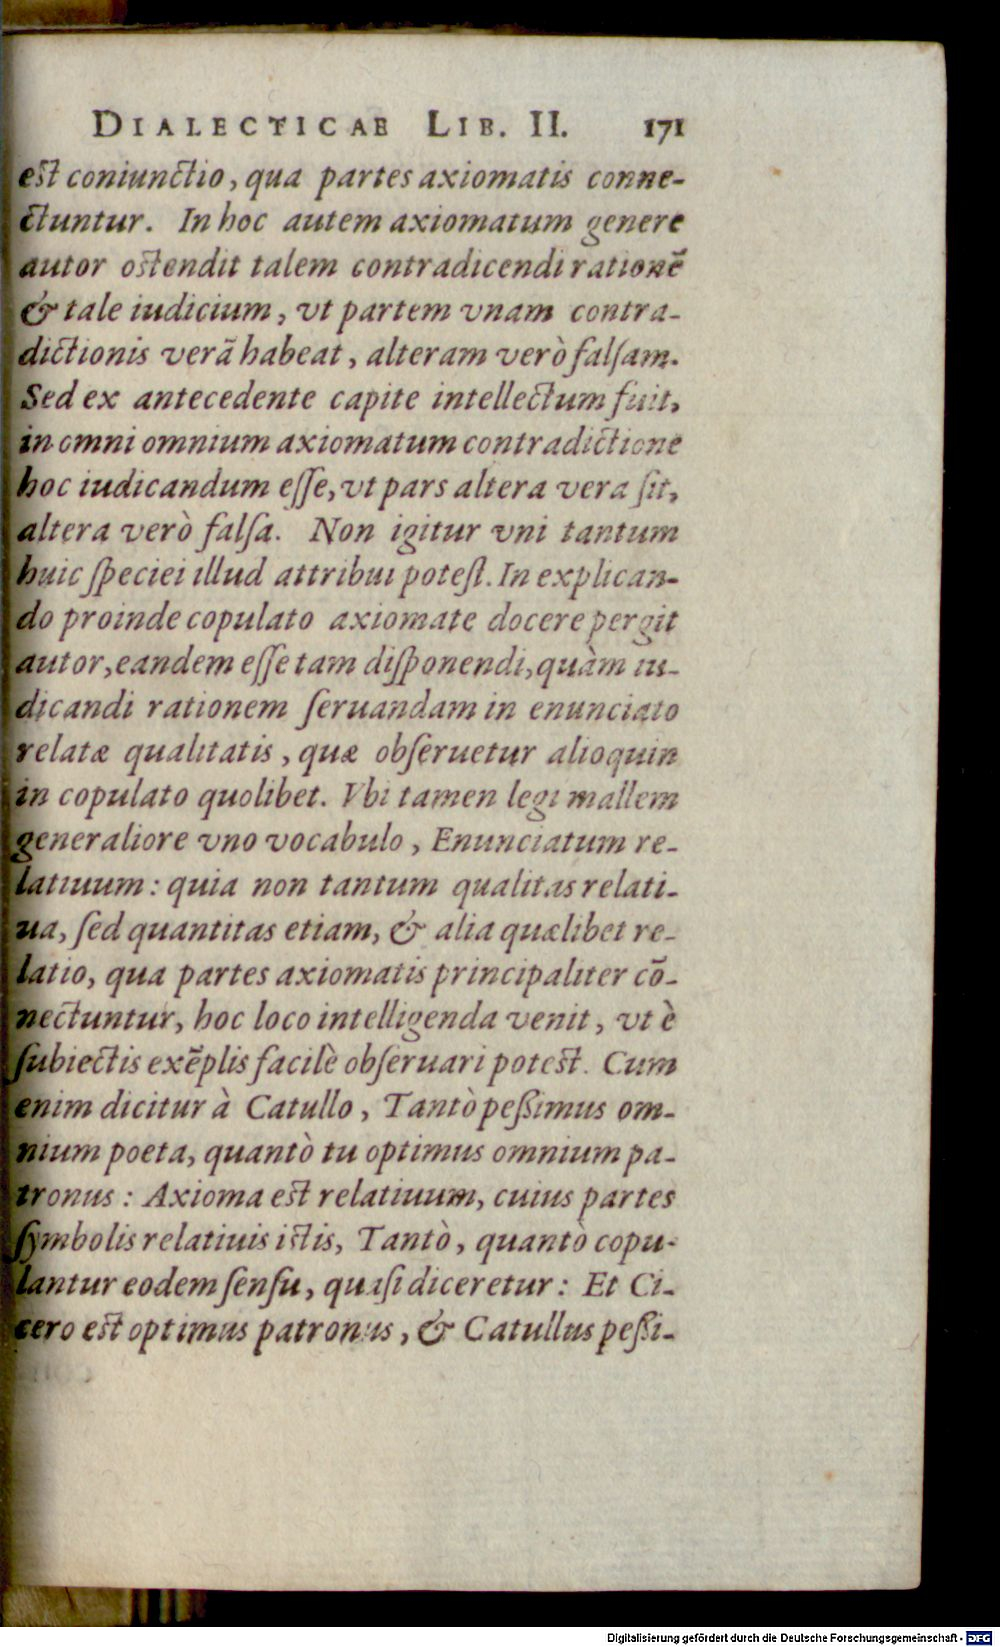 DIALECTICAE LIB. II. 171
est coniunctio, qua partes axiomatis conne-
ctuntur. In hoc autem axiomatum genere
autor ostendit talem contradicendi rationē
& tale iudicium, vt partem vnam contra-
dictionis verā habeat, alteram verò falſam.
Sed ex antecedente capite intellectum fuit,
in omni omnium axiomatum contradictione
hoc iudicandum eſſe, vt pars altera vera ſit,
altera verò falſa. Non igitur vni tantum
huic ſpeciei illud attribui poteſt. In explican-
do proinde copulato axiomate docere pergit
autor, eandem eſſe tam diſponendi, quàm iu-
dicandi rationem ſeruandam in enunciato
relatæ qualitatis, quæ obſeruetur alioquin
in copulato quolibet. Vbi tamen legi mallem
generaliore vno vocabulo, Enunciatum re-
latiuum: quia non tantum qualitas relati-
ua, ſed quantitas etiam, & alia quælibet re-
latio, qua partes axiomatis principaliter cō-
nectuntur, hoc loco intelligenda venit, vt è
ſubiectis exēplis facilè obſeruari potest. Cum
enim dicitur à Catullo, Tantò peßimus om-
nium poeta, quantò tu optimus omnium pa-
tronus: Axioma est relatiuum, cuius partes
ſymbolis relatiuis istis, Tantò, quantò copu-
lantur eodem ſenſu, quaſi diceretur: Et Ci-
cero est optimus patronus, & Catullus peßi-
Digitalisierung gefördert durch die Deutsche Forschungsgemeinschaft - DFG